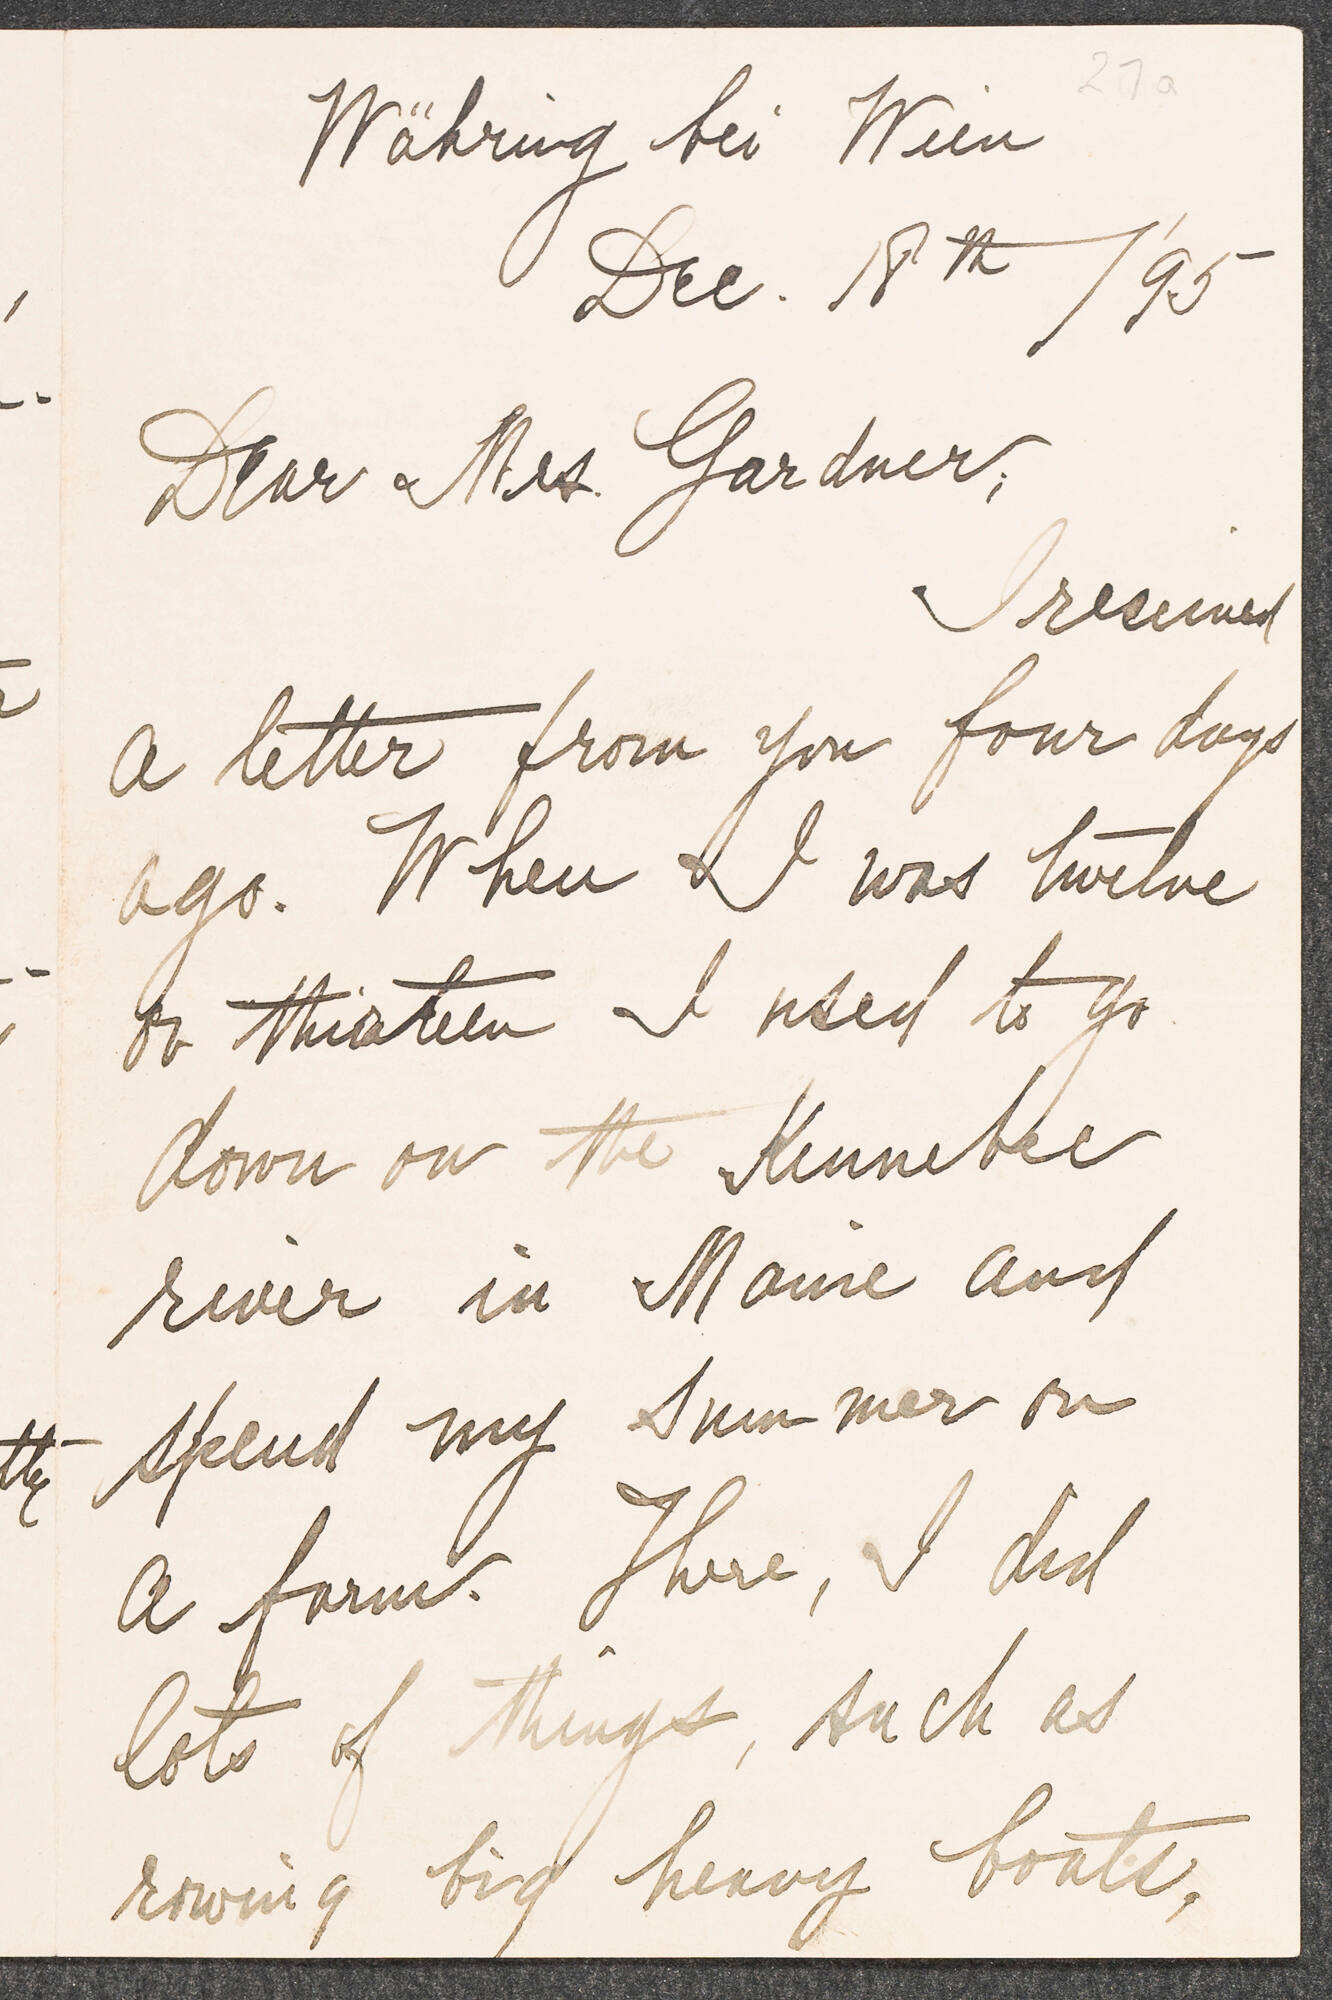 27a
Währing bei Wien
Dec. 18th /'95
Dear Mrs. Gardner;
I reseived
a letter from you four days
ago. When I was twelve
or thirteen I used to go
down on the Kennebec
river in Maine and
spend my summer on
a farm. There, I did
lots of things, such as
rowing big heavy boats,